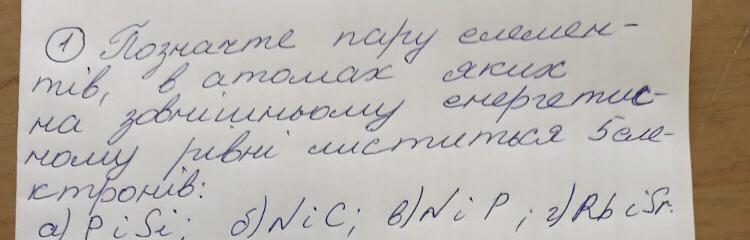 ① Позначте пару елемен-
тів, в атомах яких
на зовнішньому енергетич-
ному рівні міститься 5 еле-
ктронів:
а) P i Si; б) N i C; в) N i P; г) Rb i Sr.